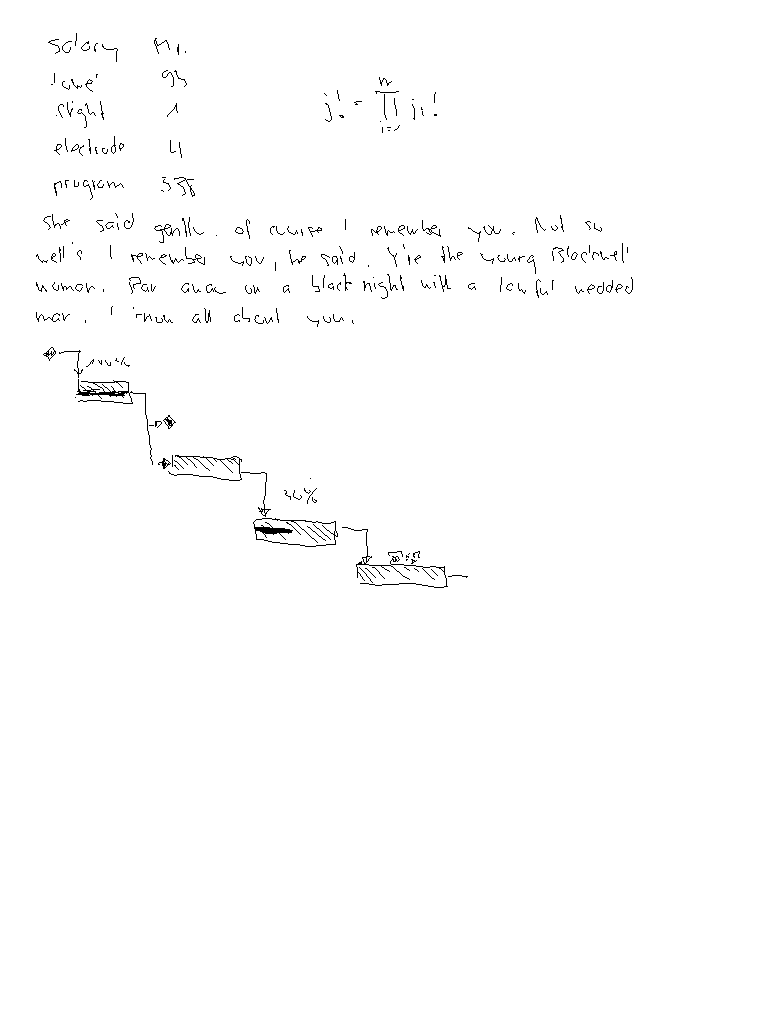 salary Mr.
94
flight 1
electrode 4
program 338
j! = ∏ i=1 n ji!
She said gently. Of course I remember you. Not so
well's I remember you, he said. Y're the young Blackwell
woman. Ran away on a black night with a lawful wedded
man. I know all about you.
100%
30%